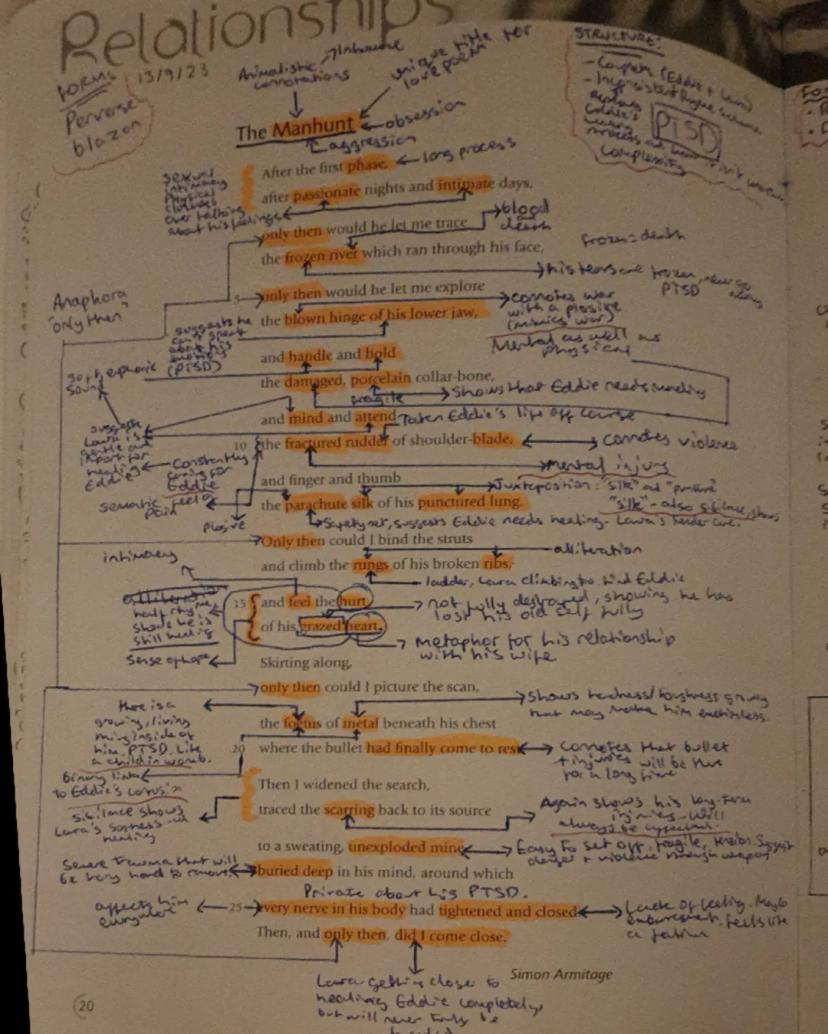 Relationships
FORM:
13/9/23
Perverse
blazon
Animalistic
connotations
Inhumane
unique title for
love poem
STRUCTURE:
- Couplets (Eddie + Laura)
- Inconsistent rhyme scheme
Eddie's
PTSD
complexity
The Manhunt
obsession
aggression
After the first phase,
long process
after passionate nights and intimate days,
sexual
intimacy
physical
over talking
about his feelings
only then would he let me trace
blood
death
the frozen river which ran through his face,
frozen = death
his tears are frozen, never go
away
PTSD
5
only then would he let me explore
Anaphora
"only then"
the blown hinge of his lower jaw,
connotes war
with a plosive
(mimics war)
Mental as well as
physical
suggests he
can't speak
about his
emotions
(PTSD)
and handle and hold
soft, euphonic
sound
the damaged, porcelain collar-bone,
fragile
Shows that Eddie needs mending
and mind and attend
Taken Eddie's life off course
suggests
Laura is
gentle and
important for
healing
Eddie
Constantly
caring for
Eddie
10
the fractured rudder of shoulder-blade,
connotes violence
Mental injury
and finger and thumb
semantic field of
pain
Juxtaposition: "silk" and "puncture"
the parachute silk of his punctured lung.
"silk" - also sibilance, shows
Laura's tender care.
plosive
Safety net, suggests Eddie needs healing.
Only then could I bind the struts
alliteration
intimacy
and climb the rungs of his broken ribs,
ladder, Laura climbing to find Eddie
15
and feel the hurt
not fully destroyed, showing he has
lost his old self fully
half rhyme
shows he is
still healing
of his grazed heart.
Metaphor for his relationship
with his wife
Sense of hope
Skirting along,
only then could I picture the scan,
Shows hardness/toughness growing
that may make him emotionless.
there is a
growing, living
thing inside of
him. PTSD. Like
a child in womb.
the foetus of metal beneath his chest
20
where the bullet had finally come to rest.
Connotes that bullet
+ injuries will be there
for a long time
binary links
to Eddie's confusion
Then I widened the search,
sibilance shows
Laura's softness and
healing
traced the scarring back to its source
Again shows his long-term
injuries - will
always be affected.
to a sweating, unexploded mine
Easy to set off, fragile, tension. Suggest
danger + violence through weapon
Severe trauma that will
be very hard to remove
buried deep in his mind, around which
Private about his PTSD.
affects him
everywhere
25
every nerve in his body had tightened and closed.
Lack of feeling. Maybe
embarrassment. Feels like
a failure
Then, and only then, did I come close.
Simon Armitage
Laura getting closer to
healing Eddie completely,
but will never truly be
20